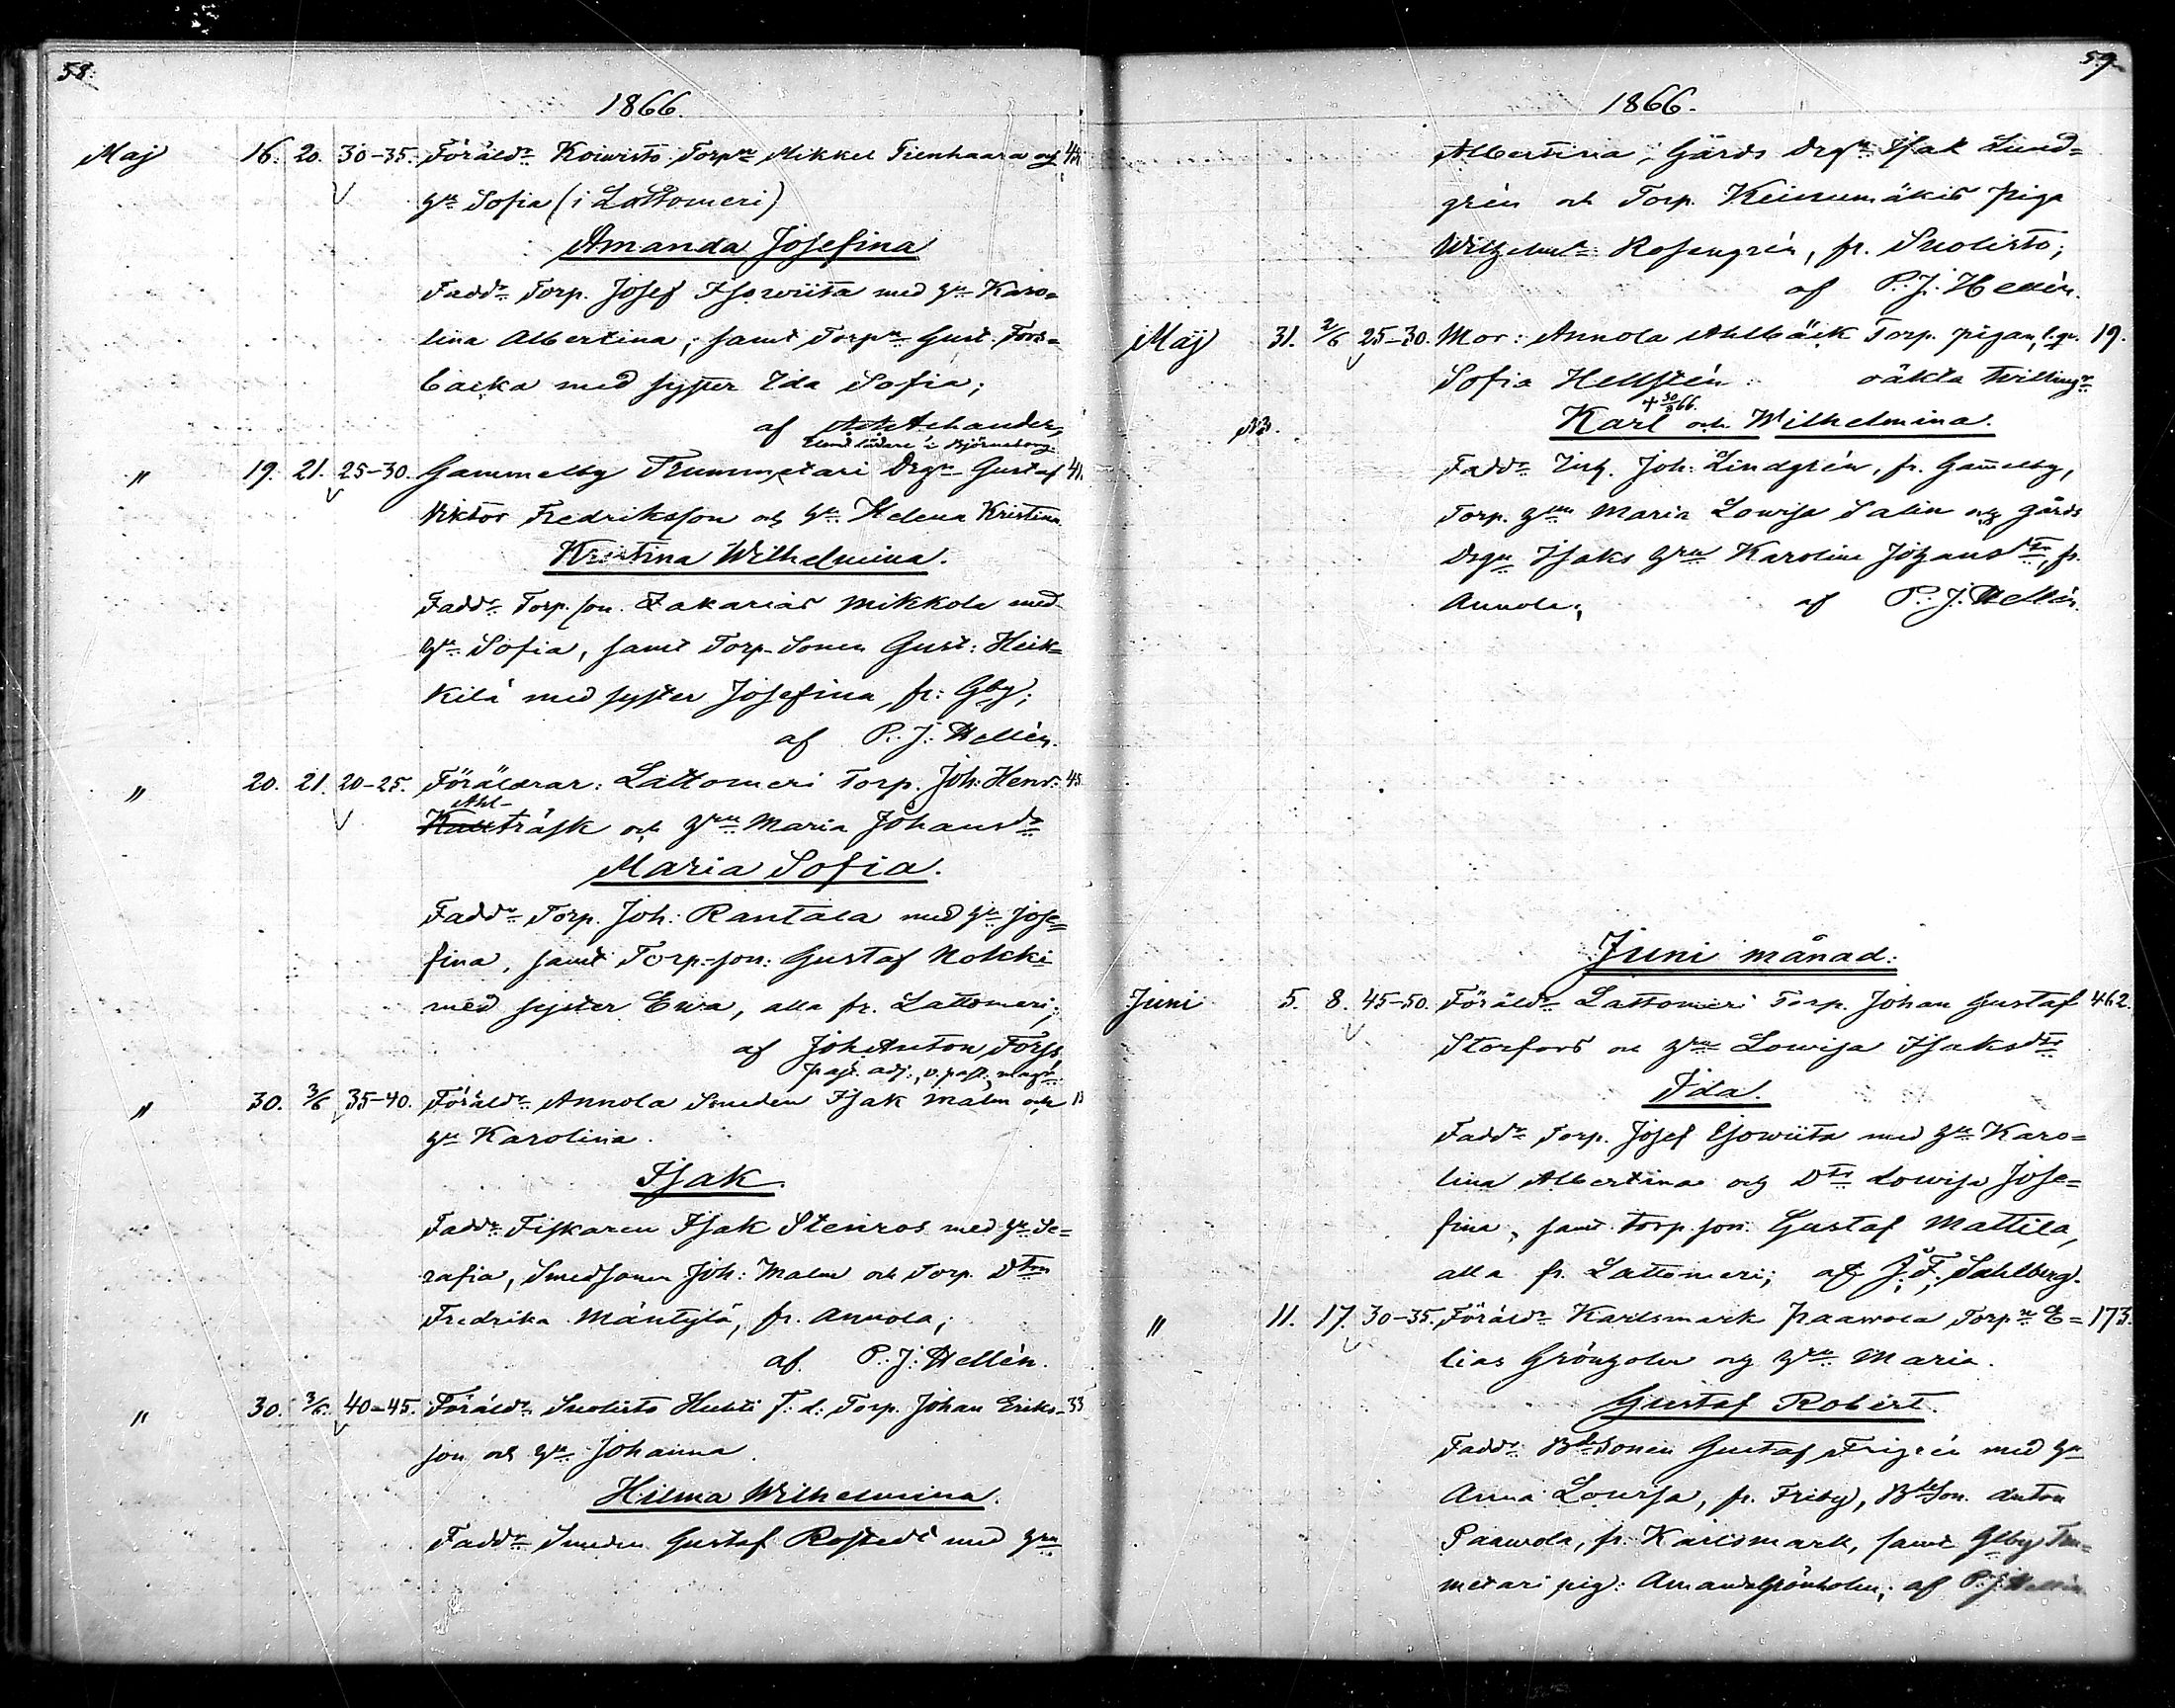 58.
1866.
Maj 16. 20. 30-35. Föräldr Koivisto Torpn Mikkel Tienhaara och
hu Sofia (i Lattomeri)
Amanda Josefina
Faddr Torp. Josef Isowiita med hu Karo=
lina Albertina, samt Torpn Gust. Fors=
backa med syster Ida Sofia;
af
i Björneborg
" 19. 21. 25-30. Gammelby Trummetari Drgn Gustaf 41.
Viktor Fredriksson och hu Helena Kristina
Kristina Wilhelmina.
Faddr Torp. son. Zakarias Mikkola med
hu Sofia, samt Torp. Sonen Gust: Heik=
kilä med syster Josefina, fr: Gby;
af P. J. Hellén.
" 20. 21. 20-25. Föräldrar: Lattomeri Torp. Joh: Henr: 45
Ahl-
träsk och hru Maria Johansdr
Maria Sofia.
Faddr Torp. Joh: Rantala med hu Jose=
fina, samt Torp-son: Gustaf Nokki
med syster Ewa, alla fr. Lattomeri;
af Joh Anton Forss,
past. adj:, v. past:,
" 30. 3/6 35-40. Föräldr Annola Smeden Isak Malm och
hu Karolina.
Isak.
Faddr Fiskaren Isak Stenros med hu Se=
rafia, Smedsonen Joh: Malm och Torp. Dton
Fredrika Mäntylä, fr. Annola;
af P. J. Hellén.
" 30. 3/6. 40-45. Föräldr Suolisto Huhti f. d. Torp. Johan Eriks- 33
son och hu Johanna.
Hilma Wilhelmina.
Faddr Smeden Gustaf Rostedt med hru
59.
1866.
Albertina, Gårds Drgn Isak Lund=
grén och Torp. Keinumäkis piga
Wilhelmi: Rosengrén, fr. Suolisto;
af P. J. Hellén.
Maj 31. 2/6 25-30. Mor: Annola Ahlbäck Torp. pigan, 19.
Sofia Hellstén: oäkta tvillingr
+ 30/8 66.
N3. Karl och Wilhelmina.
Faddr Inh. Joh: Lindgrén, fr. Gam̄elby,
Torp. hun Maria Lovisa Salin och Gårds
Drgn Isaks hru Karolina Johansdtr, fr.
Annola; af P. J. Hellén.
Juni månad:
Juni 5. 8. 45-50. Föräldr Lattomeri Torp. Johan Gustaf 462.
Storfors och hru Lovisa Isaksdtr
Ida.
Faddr Torp. Josef Isowiita med hu Karo=
lina Albertina och Dtr Lovisa Jose=
fina, samt Torp. son: Gustaf Mattila,
alla fr. Lattomeri; af J. F. Sahlberg.
" 11. 17. 30-35. Föräldr Karlsmark Paavola Torpn E= 173.
lias Grönholm och hru Maria.
Gustaf Robert.
Faddr Bdsonen Gustaf Frigrén med hu
Anna Lovisa, fr. Friby, Bdson. Anton
Paavola, fr. Karlsmark, samt Glby Tru=
metari pig: Amanda Grönholm; af P. J. Hellén